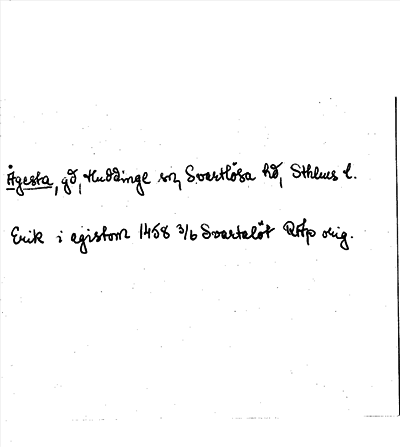 Ågesta, gd, Huddinge sn, Svartlösa hd, Sthlms l.
Erik i egistom 1458 3/6 Svartalöt RAp orig.